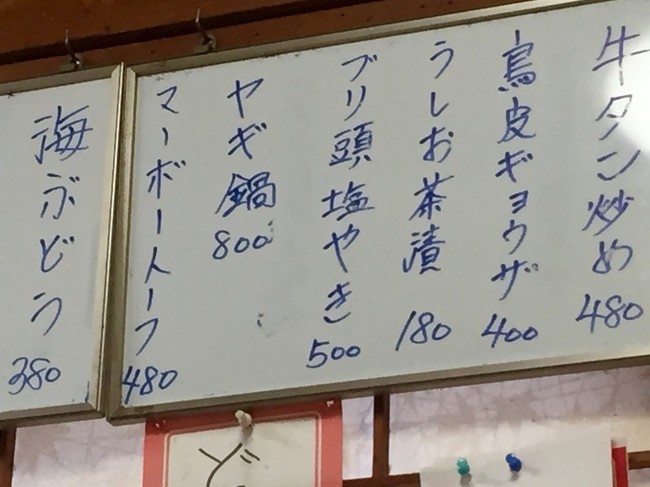 牛タン炒め 480
鳥皮ギョウザ 400
うしお茶漬 180
ブリ頭塩やき 500
ヤギ鍋 800
マーボートーフ 480
海ぶどう 380